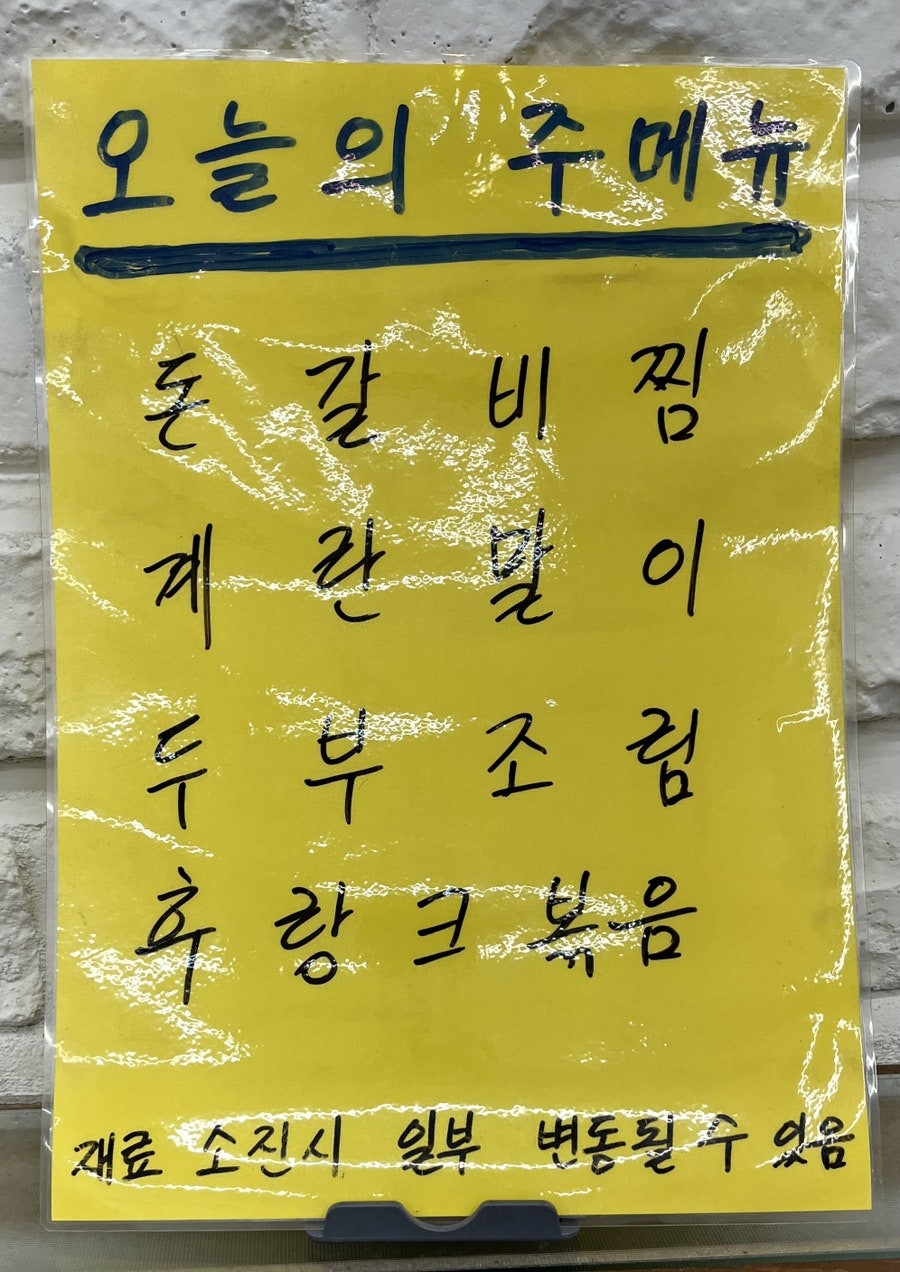 오늘의 주메뉴
돈갈비찜
계란말이
두부조림
후랑크볶음
재료 소진시 일부 변동될 수 있음